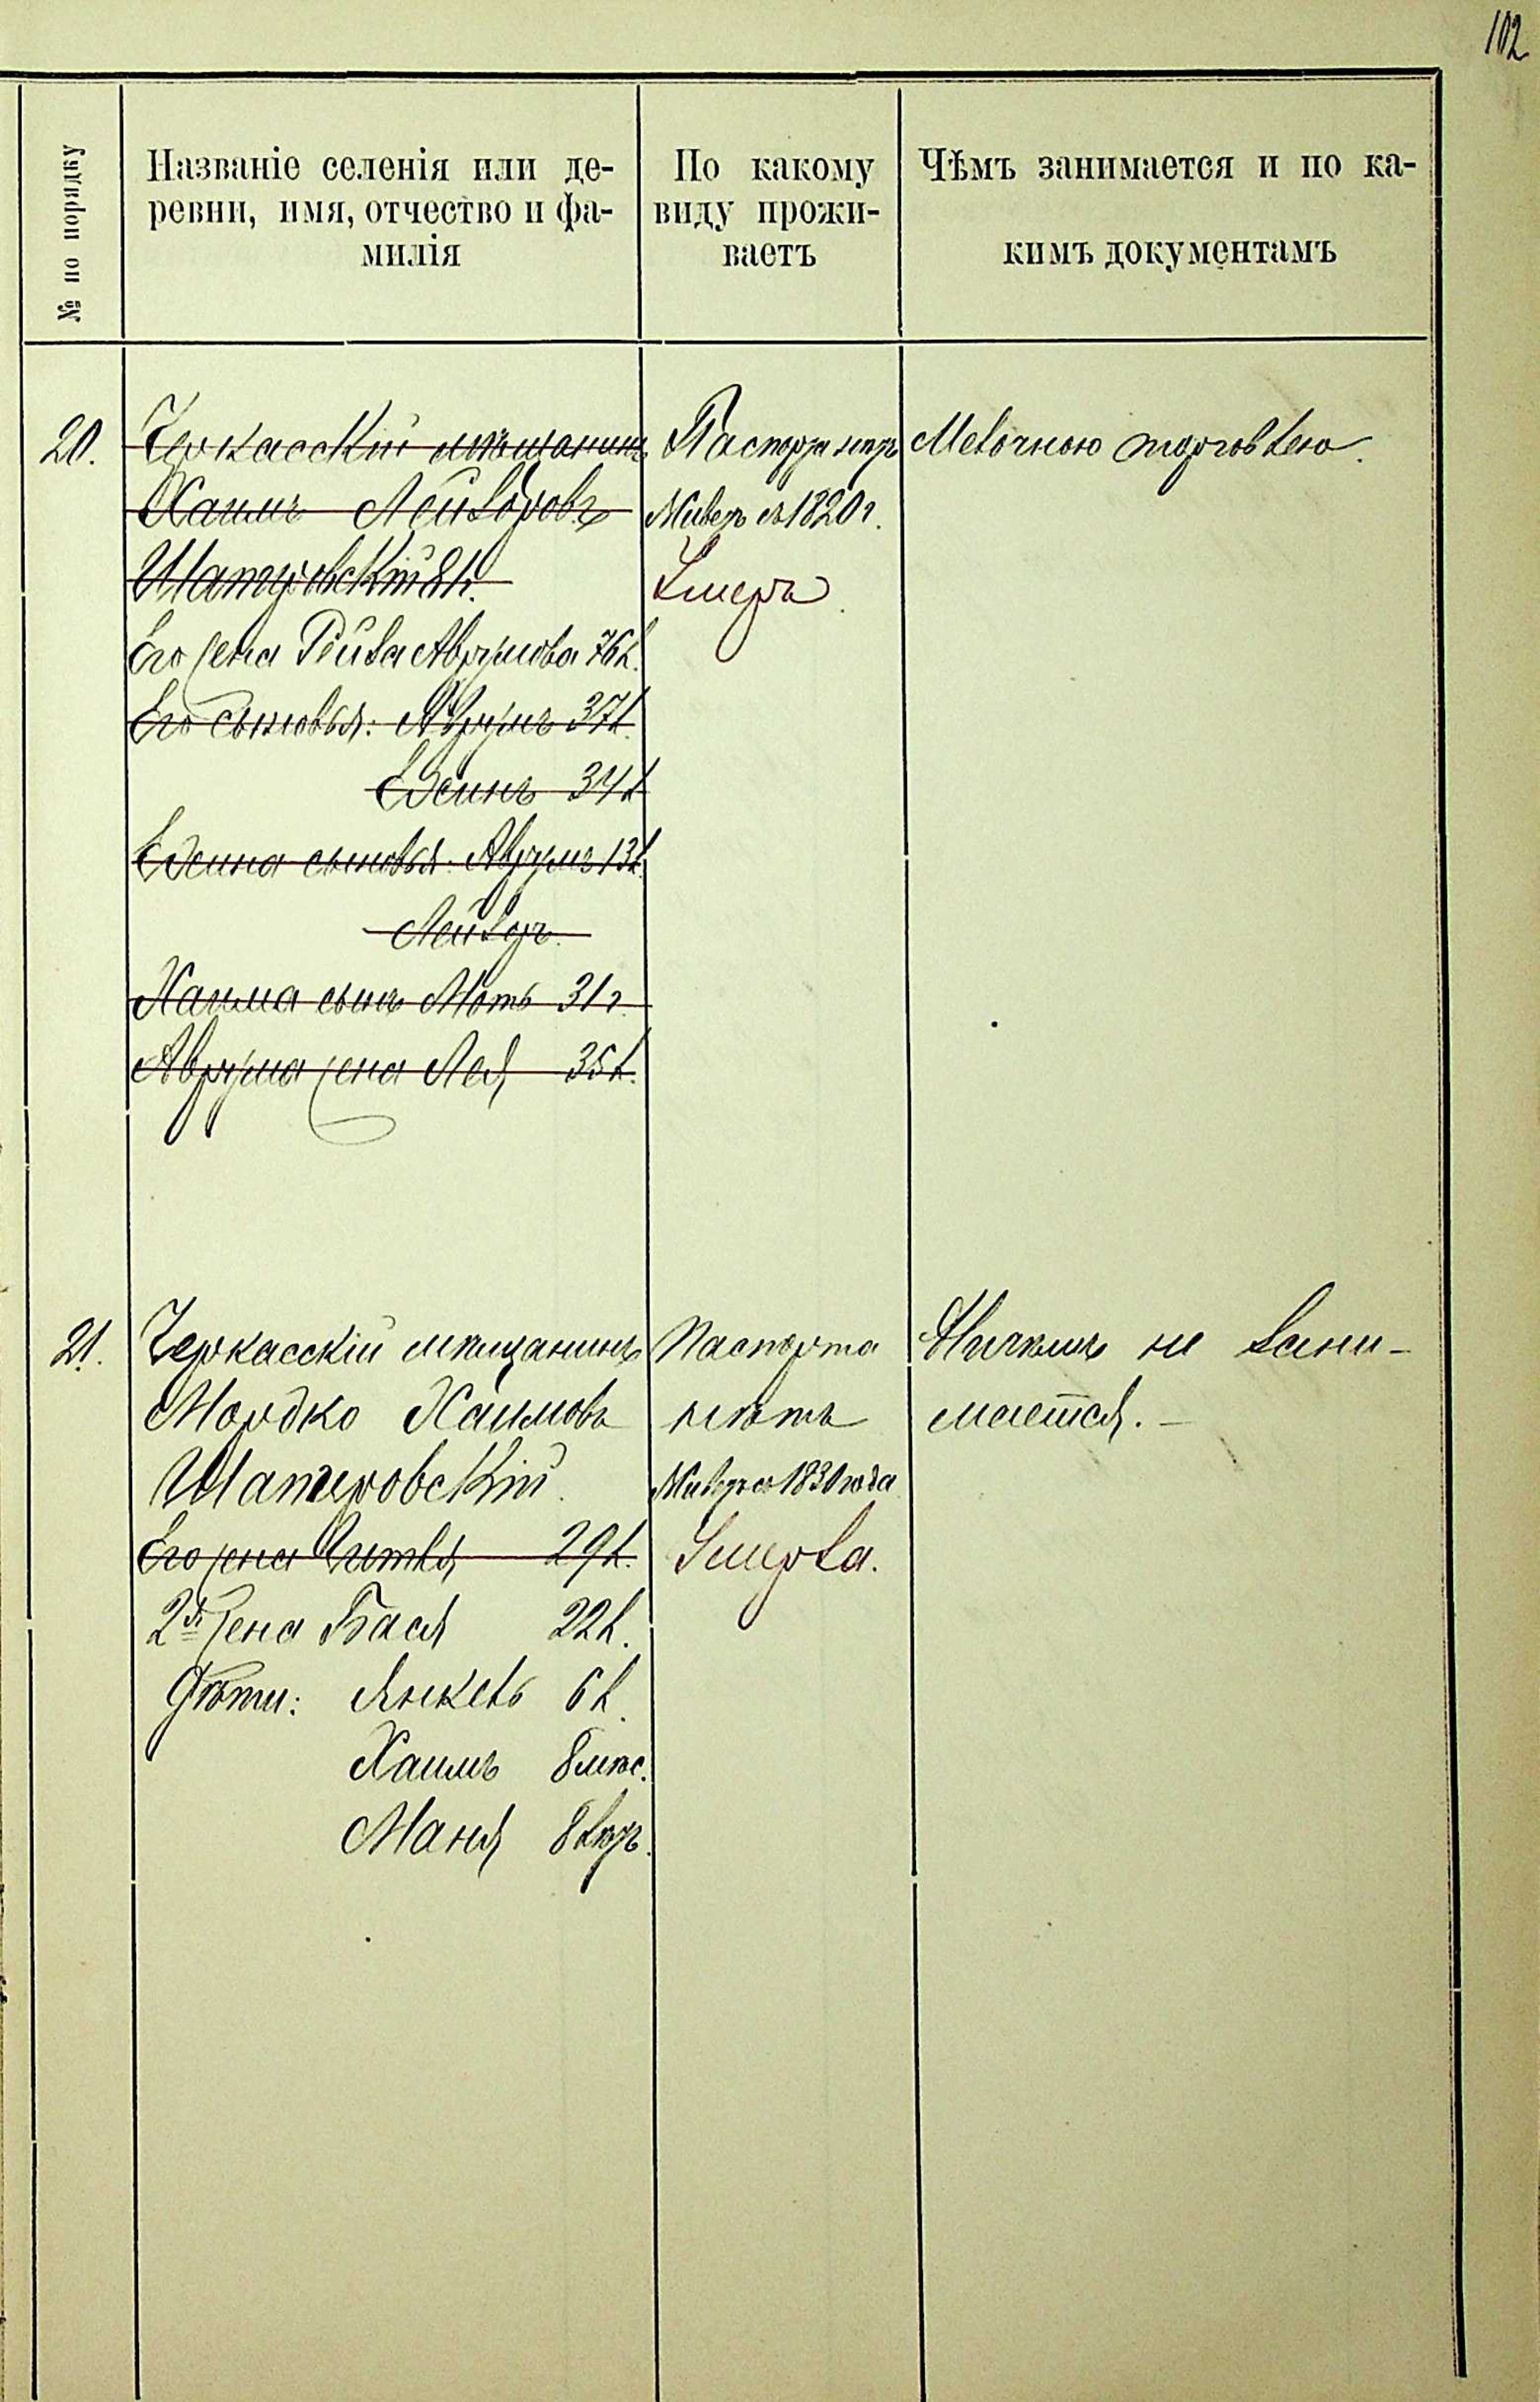 102
№ по порядку
Названіе селенія или де-
ревни, имя, отчество и фа-
милія
По какому
виду прожи-
ваетъ
Чѣмъ занимается и по ка-
кимъ документамъ
20.
Черкасскій мѣщанинъ
Хаимъ Лейзоровъ
Шатировскій 81.
Его жена Рейза Аврумова 76 л.
Его сыновья: Аврумъ 37 л.
34 л
сыновья: Аврумъ 13 л.
Лейзеръ.
Хаима сынъ Моть 31 г.
Аврума жена Лея 35 л.
Паспорта нѣтъ
Живетъ съ 1820 г.
Умеръ
Мелочною торговлею.
21.
Черкасскій мѣщанинъ
Мордко Хаимовъ
Шатировскій.
Его жена Гитля 29 л.
2я жена Бася 22 л.
Дѣти: Янкель 6 л.
Хаимъ 8 мѣс.
Маня 8 лѣтъ.
Паспорта
нѣтъ
Живетъ съ 1830 года
Умерла.
Ничѣмъ не зани-
мается. —